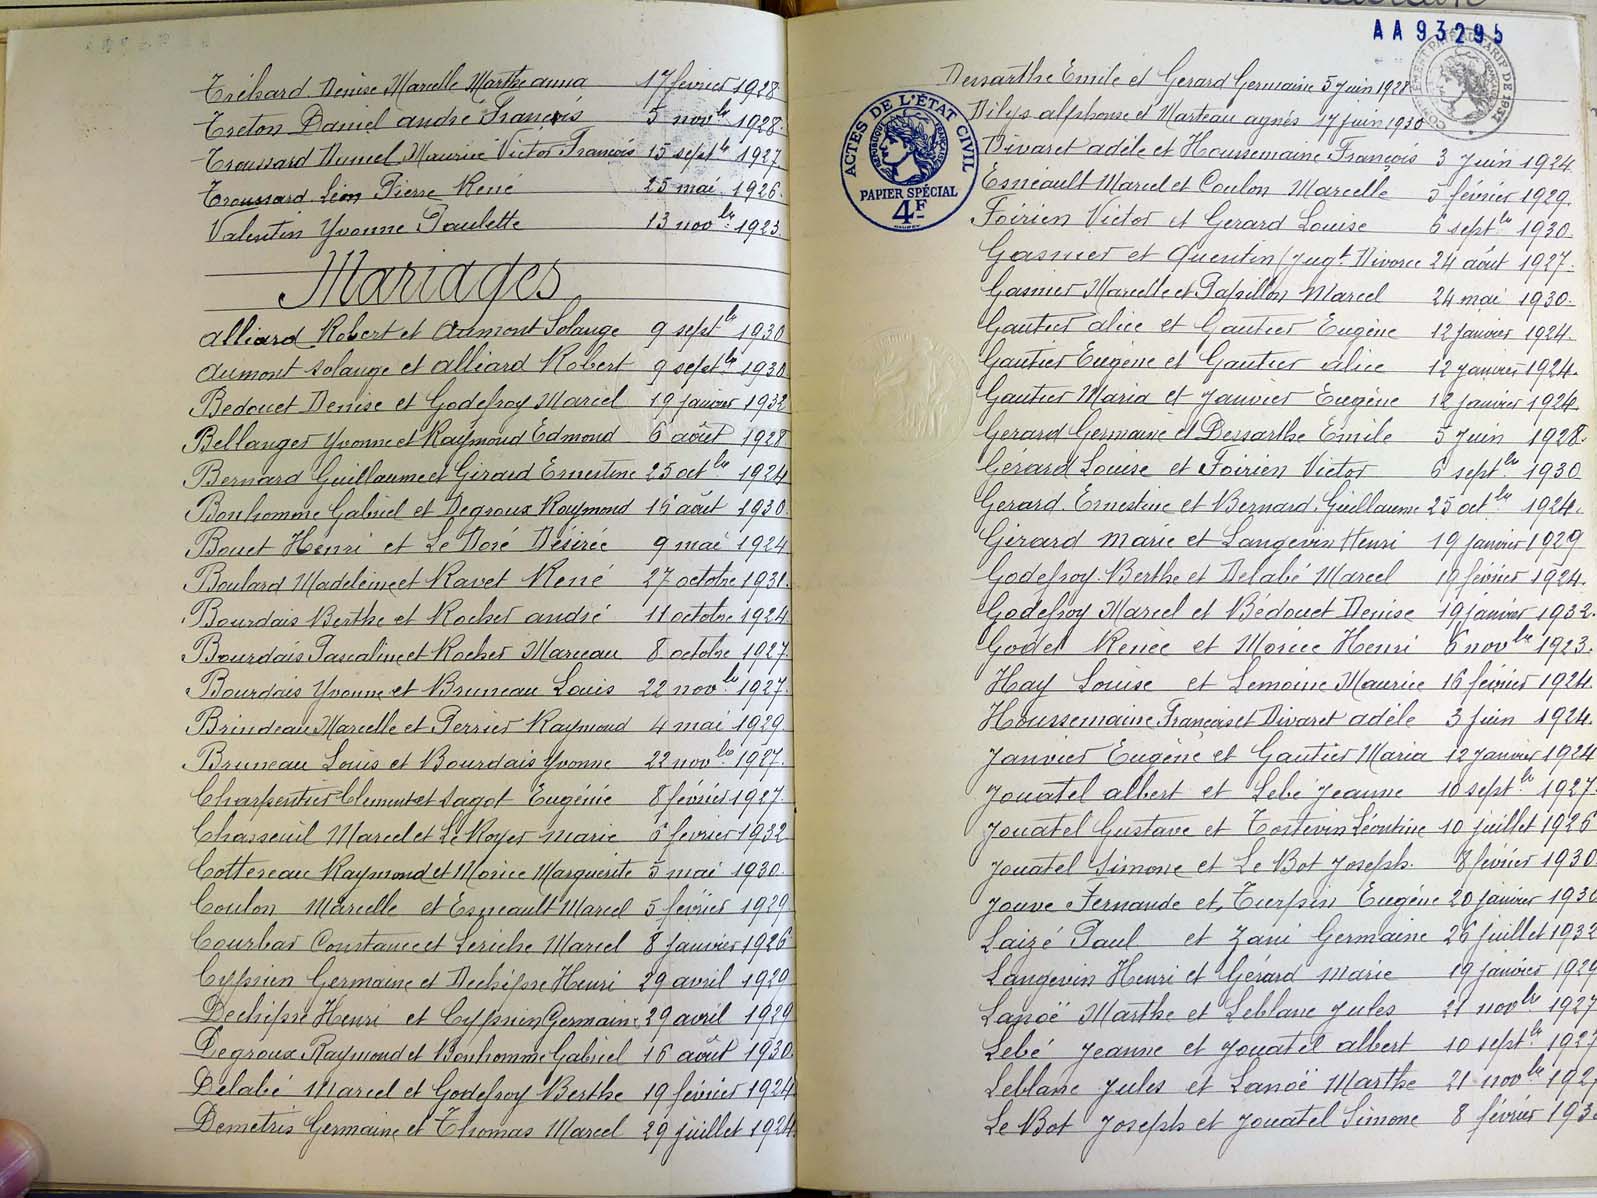 Tréhard Denise Marcelle Marthe anna 17 février 1928
Treton Daniel andré François 5 novbre 1928
Troussard Marcel Maurice Victor François 15 septbre 1927
Troussard Léon Pierre René 25 mai 1926
Valentin Yvonne Paulette 13 novbre 1923
Mariages
Alliard Robert et Aumont Solange 9 septbre 1930
Aumont Solange et Alliard Robert 9 septbre 1930
Bedouet Denise et Godefroy Marcel 19 janvier 1932
Bellanger Yvonne et Raymond Edmond 6 août 1928
Bernard Guillaume et Girard Ernestine 25 octbre 1924
Bonhomme Gabriel et Degroux Raymond 16 août 1930
Bouet Henri et Le Doré Désirée 9 mai 1924
Boulard Madeleine et Ravet René 27 octobre 1931
Bourdais Berthe et Rocher andré 11 octobre 1924
Bourdais Pascaline et Rocher Marceau 8 octobre 1927
Bourdais Yvonne et Bruneau Louis 22 novbre 1927
Brindeau Marcelle et Perrier Raymond 4 mai 1929
Bruneau Louis et Bourdais Yvonne 22 novbre 1927
Charpentier Clement et Sagot Eugénie 8 février 1927
Chasseuil Marcel et Le Royer marie 6 fevrier 1932
Cottereau Raymond et Morice Marguerite 5 mai 1930
Coulon Marcelle et Esneault Marcel 5 février 1929
Courbar Constance et Leriche Marcel 8 Janvier 1926
Cyprien Germaine et Dechipre Henri 29 avril 1929
Dechipre Henri et Cyprien Germaine 29 avril 1929
Degroux Raymond et Bonhomme Gabriel 16 août 1930
Delabé Marcel et Godefroy Berthe 19 février 1924
Demetris Germaine et Thomas Marcel 29 juillet 1924
AA93295
Dessarthe Emile et Gerard Germaine 5 juin 1928
Dilys alphonse et Marteau agnès 17 juin 1930
Divaret adèle et Houssemaine François 3 Juin 1924
Esneault Marcel et Coulon Marcelle 5 février 1929
Foirien Victor et Gerard Louise 6 septbre 1930
Gasnier et Quentin (Jugt Divorce 24 août 1927
Gasnier Marcelle et Papillon Marcel 24 mai 1930
Gautier alice et Gautier Eugène 12 janvier 1924
Gautier Eugène et Gautier alice 12 janvier 1924
Gautier Maria et Janvier Eugène 12 janvier 1924
Gerard Germaine et Dessarthe Emile 5 Juin 1928
Gérard Louise et Foirien Victor 6 septbre 1930
Gerard Ernestine et Bernard Guillaume 25 octbre 1924
Girard marie et Langevin Henri 19 janvier 1929
Godefroy Berthe et Delabé Marcel 19 février 1924
Godefroy Marcel et Bédouet Denise 19 janvier 1932
Godet Renée et Morice Henri 6 novbre 1923
Hay Louise et Lemoine Maurice 16 février 1924
Houssemaine François et Divaret adèle 3 juin 1924
Janvier Eugène et Gautier Maria 12 Janvier 1924
Jouatel albert et Lebé Jeanne 10 septbre 1927
Jouatel Gustave et Tostivin Léontine 10 juillet 1926
Jouatel Simone et Le Bot Joseph 8 février 1930
Jouve Fernande et Turpin Eugène 20 janvier 1930
Laizé Paul et Zani Germaine 26 juillet 1932
Langevin Henri et Gérard marie 19 janvier 1929
Lanoë Marthe et Leblanc Jules 21 novbre 1927
Lebé Jeanne et Jouatel albert 10 septbre 1927
Leblanc Jules et Lanoë Marthe 21 novbre 192
Le Bot Joseph et Jouatel Simone 8 février 193
ACTES DE L'ÉTAT CIVIL
RÉPUBLIQUE FRANÇAISE
PAPIER SPÉCIAL
4F